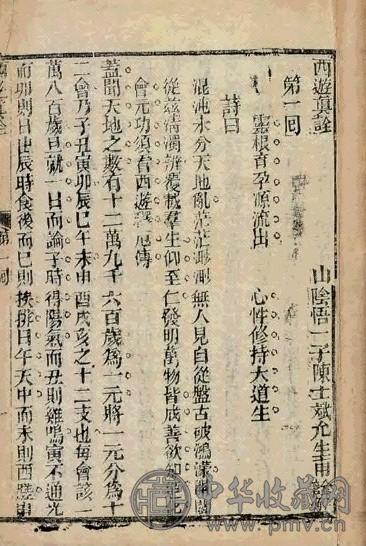 西遊眞詮
山陰悟一子陳士斌允生甫詮解
第一回
靈根育孕源流出 心性修持大道生
詩曰
混沌未分天地亂茫茫渺渺無人見自從盤古破鴻濛開闢
從茲清濁辨覆載羣生仰至仁發明萬物皆成善欲知造化
會元功須看西遊釋厄傳
蓋聞天地之數有十二萬九千六百歲爲一元將一元分爲十
二會乃子丑寅卯辰巳午未申酉戌亥之十二支也每會該一
萬八百歲且就一日而論子時得陽氣而丑則雞鳴寅不通光
而卯則日出辰時食後而巳則挨排日午天中而未則西蹉申
第一回
中华收藏网
www.pmv.cn